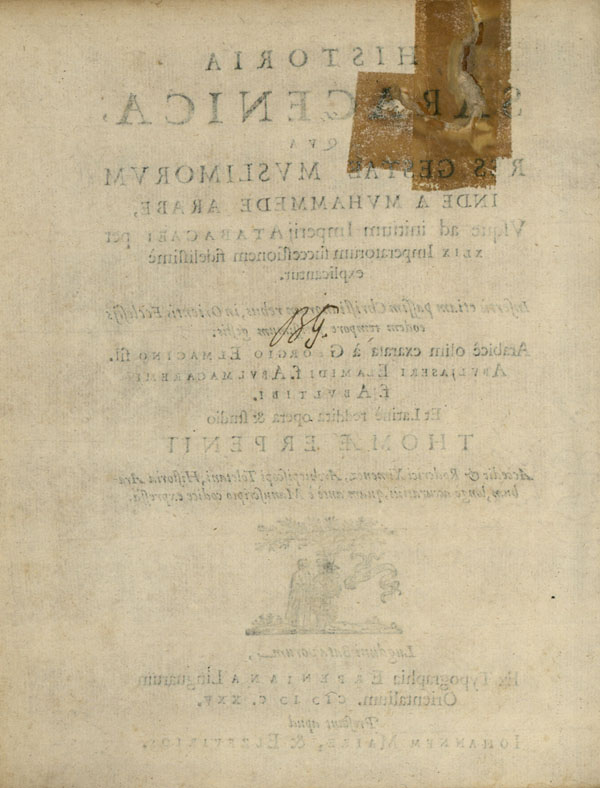 HISTORIA
SARACENICA,
QVA
RES GESTAE MVSLIMORVM
INDE A MVHAMMEDE ARABE,
Vſque ad initium Imperij ATABACAEI per
XLIX Imperatorum ſucceſſionem fideliſſimè
explicantur.
Inſertis etiam paſſim Chriſtianorum rebus, in Orientis Eccleſiis
eodem tempore geſtis.
Arabicè olim exarata à GEORGIO ELMACINO fil.
ABVLJASERI ELAMIDI f. ABVLMACAREMI
f. ABVLTIBI.
Et Latinè reddita operâ & ſtudio
THOMÆ ERPENII
Accedit & Roderici Ximenez, Archiepiſcopi Toletani, Hiſtoria Ara-
bum, longe accuratius, quam ante è Manuſcripto codice expreſſa.
Lugduni Batavorum,
Ex Typographia ERPENIANA Linguarum
Orientalium.
Proſtant apud
IOHANNEM MAIRE, & ELZEVIRIOS.